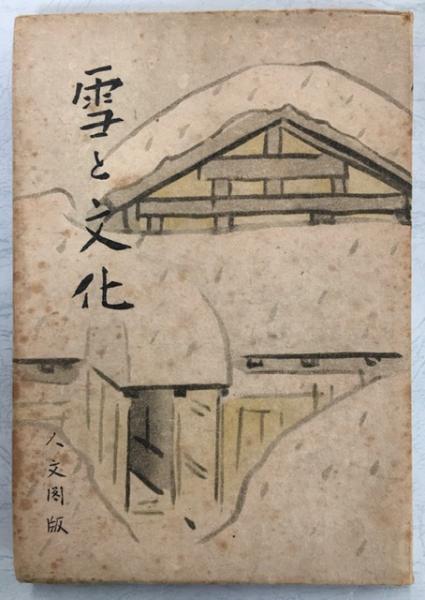 雪と文化
人文閣版